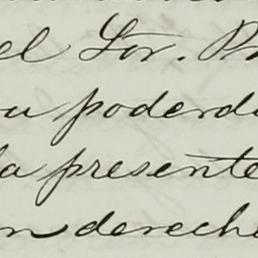 el Sor. P
u poderd
la presente
n derech